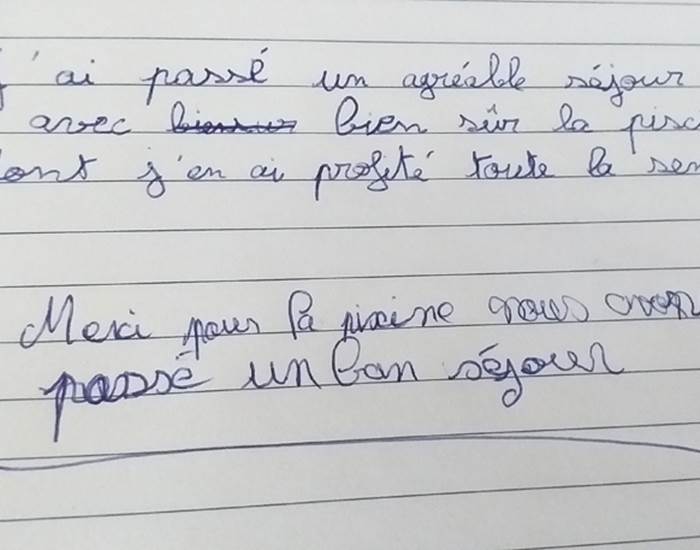 j'ai passé un agréable séjour
avec bien sûr la pisc
ont j'en ai profité toute la sem
Merci pour la piscine nous avon
passé un bon séjour